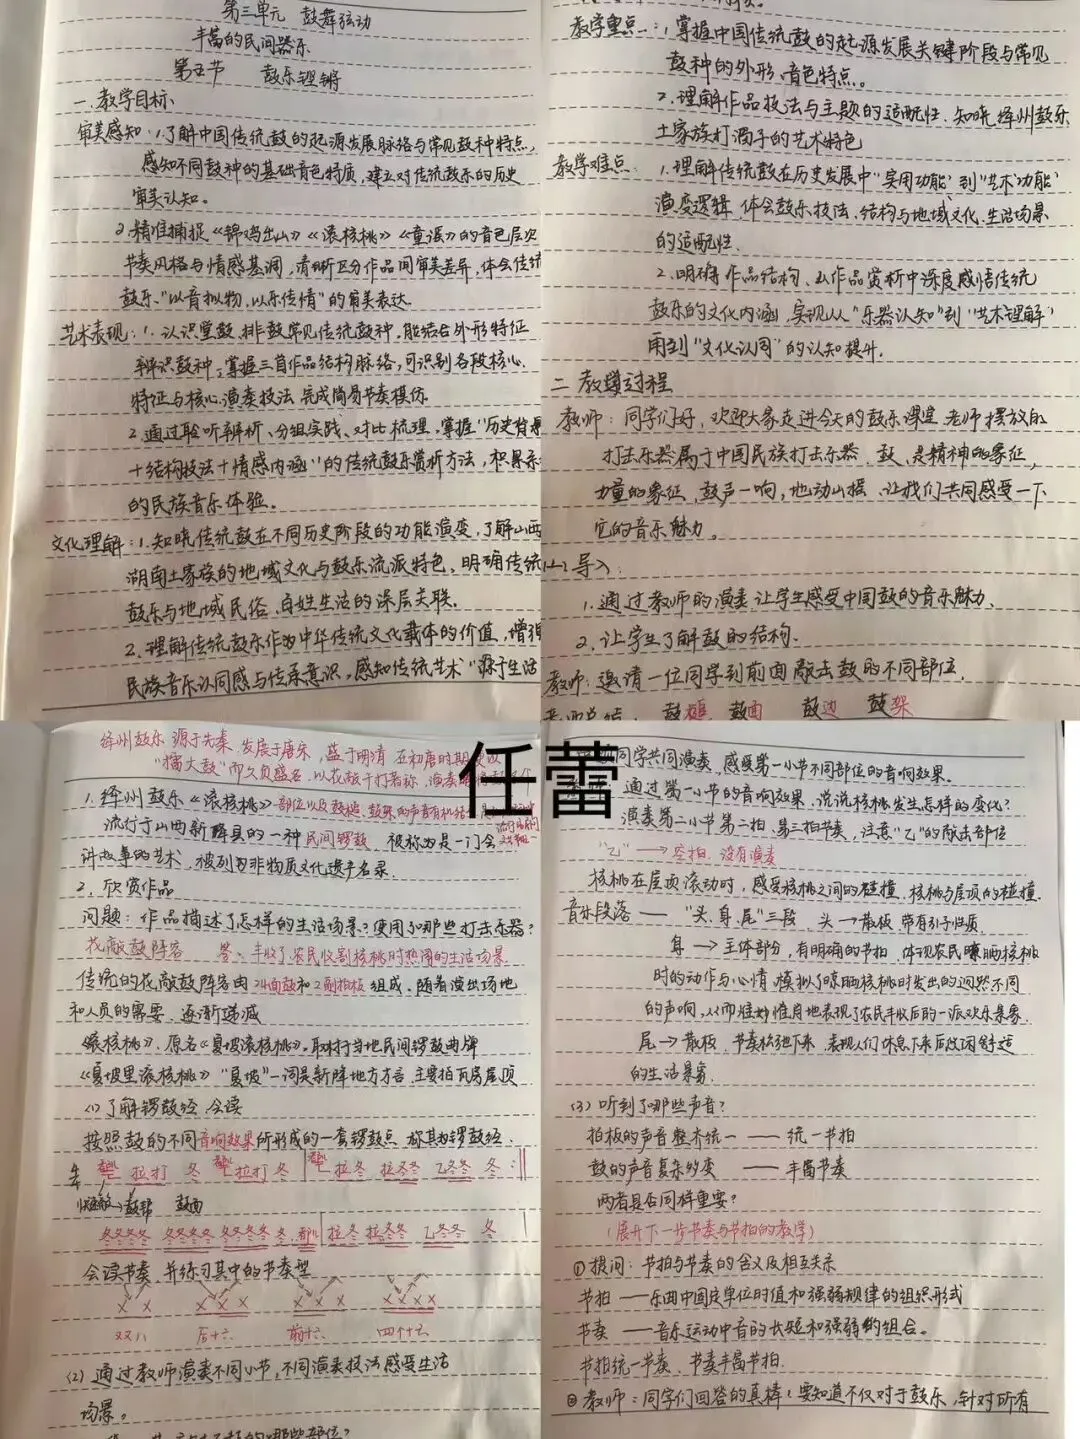 第三单元 鼓舞弦动
丰富的民间器乐
第五节 鼓乐铿锵
一、教学目标、
审美感知:1.了解中国传统鼓的起源发展脉络与常见鼓种特点,
感知不同鼓种的基础音色特质,建立对传统鼓乐的历史
审美认知。
2.精准捕捉《锦鸡出山》《滚核桃》《童谣》的音色层次
节奏风格与情感基调,清晰区分作品间审美差异,体会传统
鼓乐"以音拟物,以乐传情"的审美表达.
艺术表现:1.认识堂鼓、排鼓常见传统鼓种,能结合外形特征
辨识鼓种;掌握三首作品结构脉络,可识别各段核心
特征与核心演奏技法,完成简易节奏模仿.
2.通过聆听辨析、分组实践、对比梳理,掌握"历史背景
+结构技法+情感内涵"的传统鼓乐赏析方法,积累
的民族音乐体验。
文化理解:1.知晓传统鼓在不同历史阶段的功能演变,了解山西
湖南土家族的地域文化与鼓乐流派特色,明确传统
鼓乐与地域民俗、百姓生活的深层关联.
2.理解传统鼓乐作为中华传统文化载体的价值,增强
民族音乐认同感与传承意识,感知传统艺术"源于生活
教学重点:1.掌握中国传统鼓的起源发展关键阶段与常见
鼓种的外形、音色特点。
2.理解作品技法与主题的适配性,知晓绛州鼓乐
土家族打溜子的艺术特色
教学难点:1.理解传统鼓在历史发展中"实用功能"到"艺术功能"
演变逻辑,体会鼓乐技法、结构与地域文化、生活场景
的适配性.
2.明晰作品结构、从作品赏析中深度感悟传统
鼓乐的文化内涵,实现从"乐器认知"到"艺术理解"
再到"文化认同"的认知提升.
二 教学过程
教师:同学们好,欢迎大家走进今天的鼓乐课堂,老师摆放的
打击乐器属于中国民族打击乐器,鼓、是精神的象征,
力量的象征,鼓声一响,地动山摇,让我们共同感受一下
它的音乐魅力。
(一)导入:
1.通过教师的演奏让学生感受中国鼓的音乐魅力、
2.让学生了解鼓的结构.
教师:邀请一位同学到前面敲击鼓的不同部位.
鼓槌 鼓面 鼓边 鼓架
任蕾
绛州鼓乐 源于先秦,发展于唐宋,盛于明清 在初唐时期
"擂大鼓"而久负盛名,以花敲干打著称,演奏
1.绛州鼓乐《滚核桃》部位以及鼓槌、鼓架的声音有机结
流行于山西新绛县的一种民间锣鼓 被称为是一门会
讲故事的艺术,被列为非物质文化遗产名录.
2.欣赏作品
问题:作品描述了怎样的生活场景?使用了哪些打击乐器?
花敲鼓阵容 答:丰收了农民收割核桃时热闹的生活场景.
传统的花敲鼓阵容由24面鼓和2副拍板组成,随着演出场地
和人员的需要,逐渐递减
《滚核桃》,原名《厦坡滚核桃》,取材于当地民间锣鼓曲牌
《厦坡里滚核桃》"厦坡"一词是新绛地方方言,主要指瓦房屋顶
(1)了解锣鼓经,会读
按照鼓的不同音响效果所形成的一套锣鼓点,称其为锣鼓经.
拉打 冬 拉打 冬 拉冬 拉冬冬 乙冬冬 冬
鼓帮 鼓面
冬冬冬冬 冬冬冬冬 冬冬冬冬 冬 都儿 拉冬 拉冬冬 乙冬冬 冬
会读节奏 并练习其中的节奏型
X X X X X X X X X X X X
双八 后十六 前十六 四个十六
(2)通过教师演奏不同小节,不同演奏技法感受生活
场景。
的哪些部位?
同学共同演奏,感受第一小节不同部位的音响效果.
通过第一小节的音响效果,说说核桃发生怎样的变化?
演奏第二小节第二拍、第三拍节奏,注意"乙"的敲击部位
"乙"→空拍,没有演奏
核桃在屋顶滚动时,感受核桃之间的碰撞,核桃与屋顶的碰撞.
音乐段落——"头、身、尾"三段,头→散板 带有引子性质
身→主体部分,有明确的节拍,体现农民晾晒核桃
时的动作与心情,模拟了晾晒核桃时发出的迥然不同
的声响,从而惟妙惟肖地表现了农民丰收后的一派欢乐景象.
尾→散板,节奏松弛下来,表现人们休息下来后悠闲舒适
的生活景象.
(3)听到了哪些声音?
拍板的声音整齐统一——统一节拍
鼓的声音复杂多变——丰富节奏
两者是否同样重要?
(展开下一步节奏与节拍的教学)
①提问:节拍与节奏的含义及相互关系
节拍——乐曲中固定单位时值和强弱规律的组织形式
节奏——音乐运动中音的长短和强弱的组合。
节拍统一节奏、节奏丰富节拍.
②教师:同学们回答的真棒!要知道不仅对于鼓乐,针对所有